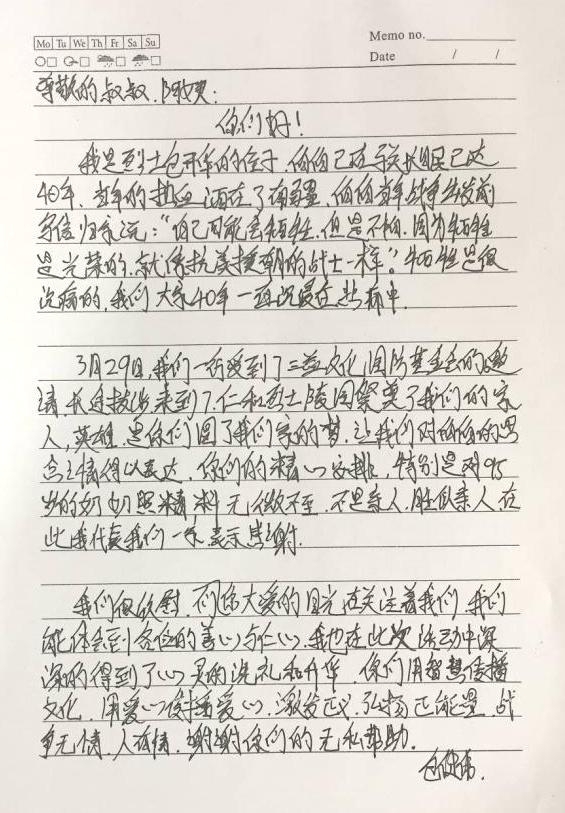 Mo Tu We Th Fr Sa Su
Memo no.
Date / /
尊敬的叔叔、阿姨:
你们好!
我是烈士包开华的侄子,伯伯已经 长眠已达
40年,当年的热血洒在了南疆,伯伯当年战争出发前
写信归家说:“自己可能会牺牲,但是不怕,因为牺牲
是光荣的,就像抗美援朝的战士一样。”牺牲是很
沉痛的,我们大家40年一直沉浸在悲痛中.
3月29日,我们一行受到了三益文化国防基金会的邀
请,长途跋涉来到了仁和烈士陵园祭奠了我们的家
人,英雄.是你们圆了我们家的梦,让我们对伯伯的思
念之情得以表达,你们的精心安排,特别是对95
岁的奶奶照料 无微不至,不是亲人,胜似亲人,在
此我代表我们一家表示感谢.
我们很欣慰, 大爱的目光在关注着我们,我们
能体会到各位的善心与仁心,我也在此次活动中深
深的得到了心灵的洗礼和升华,你们用智慧传播
文化,用爱心传播爱心,激发正义,弘扬正能量,战
争无情,人有情,谢谢你们的无私帮助.